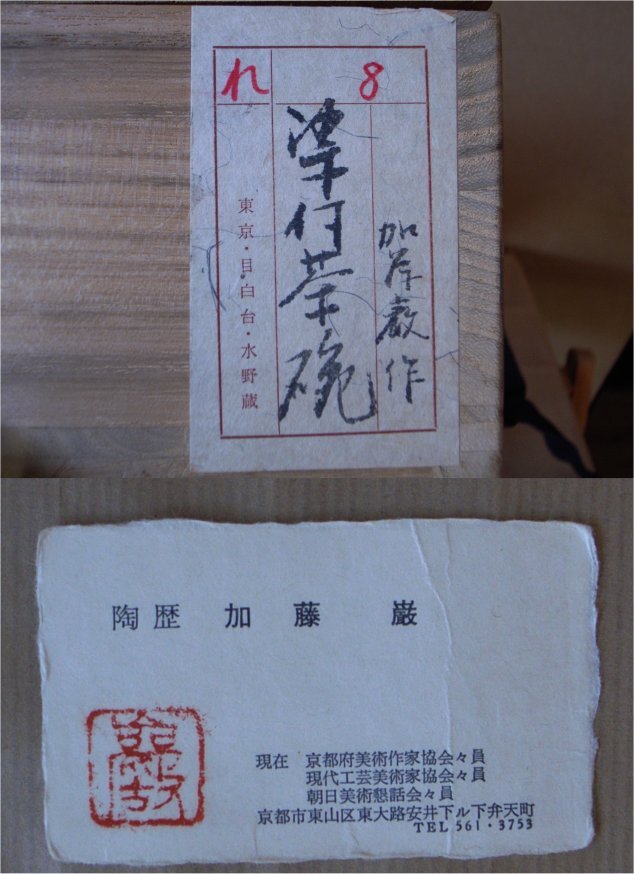 れ 8
加岸厳作
染付茶碗
東京・目白台・水野蔵
陶歴 加藤 巌
現在 京都府美術作家協会々員
現代工芸美術家協会々員
朝日美術懇話会々員
京都市東山区東大路安井下ル下弁天町
TEL 561・3753